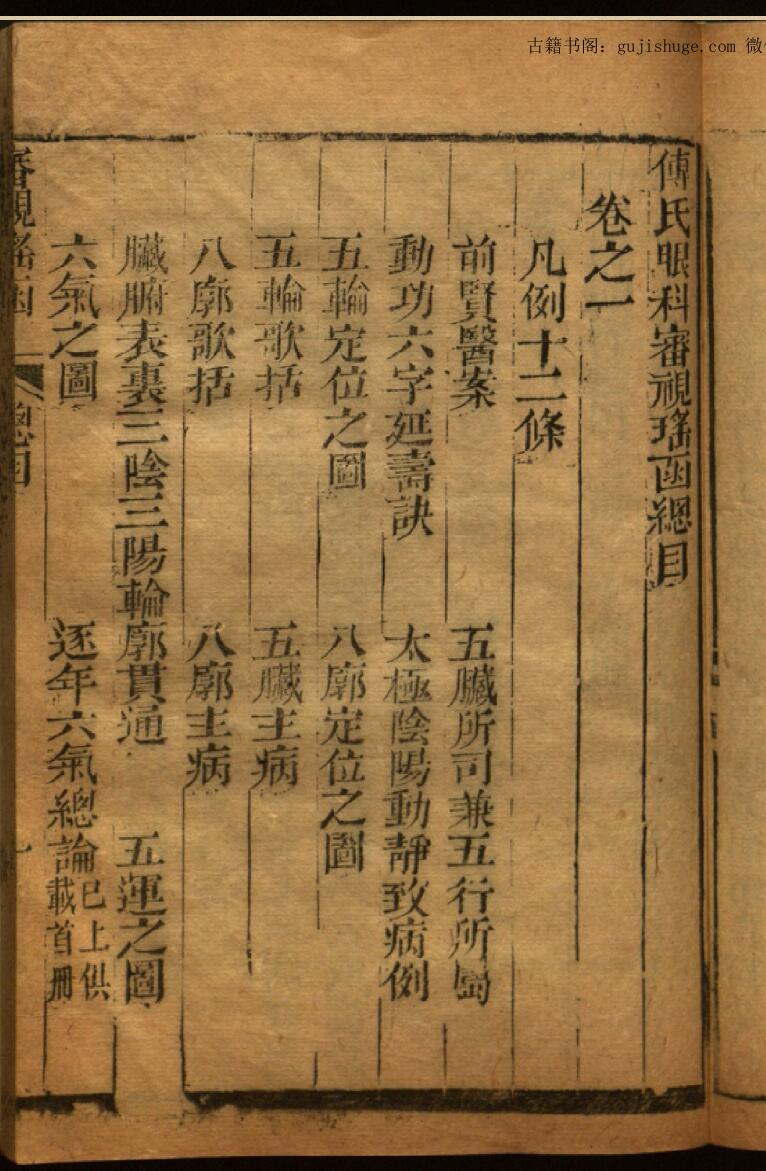 古籍书阁：gujishuge.com 微
傅氏眼科審視瑤函總目
卷之一
凡例十二條
前賢醫案 五臟所司兼五行所屬
動功六字延壽訣 太極陰陽動靜致病例
五輪定位之圖 八廓定位之圖
五輪歌括 五臟主病
八廓歌括 八廓主病
臟腑表裏三陰三陽輪廓貫通 五運之圖
六氣之圖 逐年六氣總論已上俱載首冊
審視瑤函 總目 一